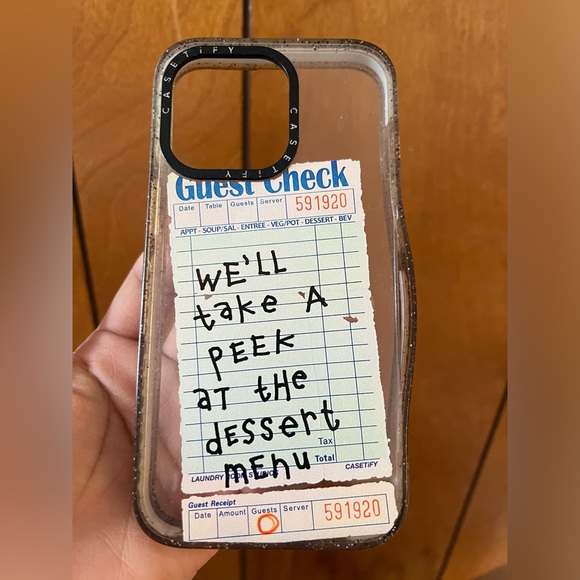 CASETiFY
CASETiFY
CASETiFY
Guest Check
Date Table Guests Server 591920
APPT - SOUP/SAL - ENTREE - VEG/POT - DESSERT - BEV
WE'LL
take A
PEEK
aT tHe
dESSert
Tax
mEnu Total
LAUNDRY CASETiFY
Guest Receipt
Date Amount Guests Server 591920